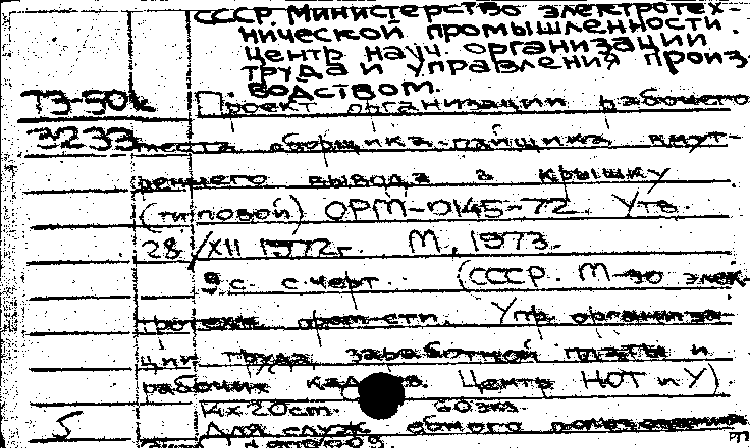 СССР. Министерство электротех-
нической промышленности.
Центр науч. организации
труда и управления произ-
водством.
ТЭ-50к Проект организации рабочего
3233 места сборщика-пайщика внут-
реннего вывода в крышку
(типовой) ОРМ-0145-72. Утв.
28/XII 1972г. М., 1973.
8 с. с черт. (СССР. М-во элек-
тротехн. пром-сти. Упр. организа-
ции труда, заработной платы и
рабочих кадров. Центр НОТ и У).
14х20см. 60 экз.
5 Для служ